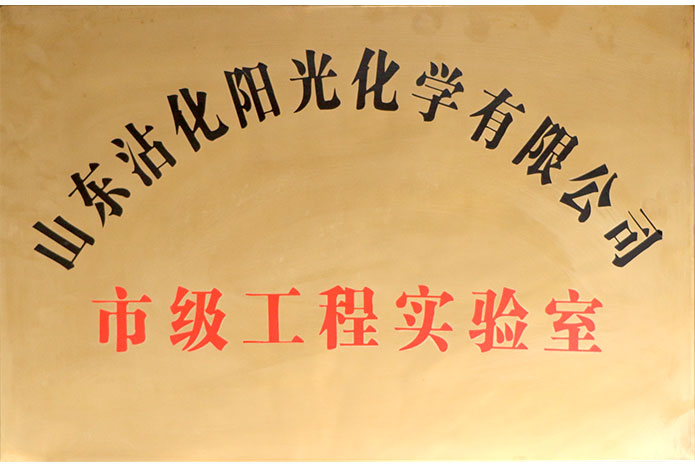 山东沾化阳光化学有限公司
市级工程实验室